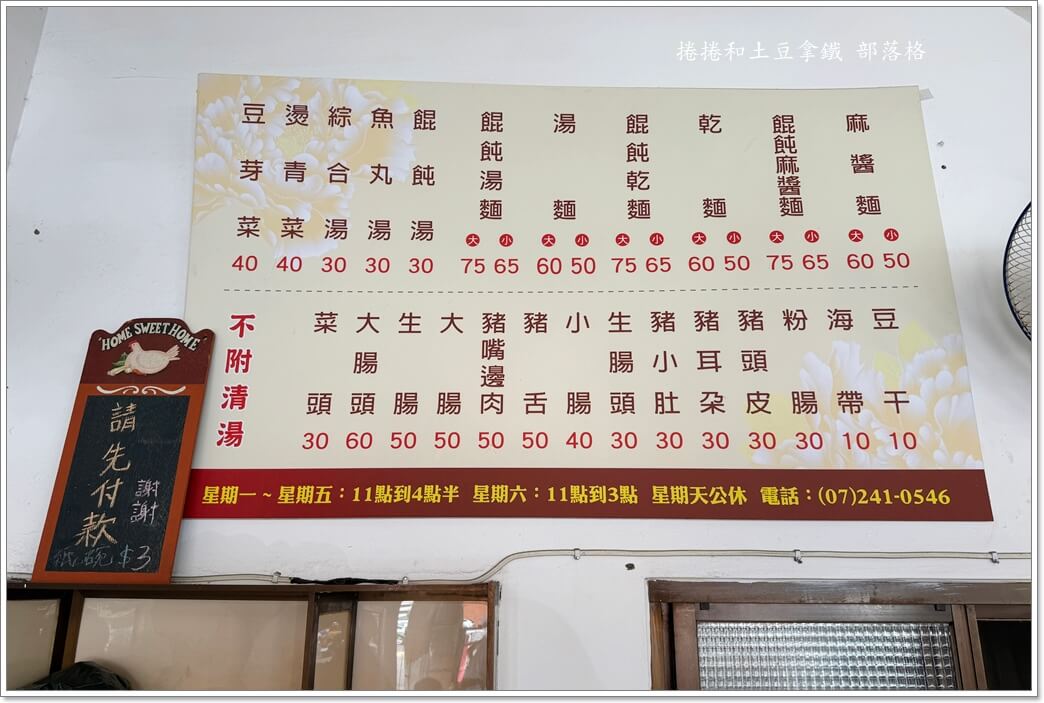 捲捲和土豆拿鐵 部落格
麻醬麵 大 60 小 50
餛飩麻醬麵 大 75 小 65
乾麵 大 60 小 50
餛飩乾麵 大 75 小 65
湯麵 大 60 小 50
餛飩湯麵 大 75 小 65
餛飩湯 30
魚丸湯 30
綜合湯 30
燙青菜 40
豆芽菜 40
豆干 10
海帶 10
粉腸 30
豬頭皮 30
豬耳朵 30
豬小肚 30
生腸頭 30
小腸 40
豬舌 50
豬嘴邊肉 50
大腸 50
生腸 50
大腸頭 60
菜頭 30
不附清湯
星期一~星期五：11點到4點半 星期六：11點到3點 星期天公休 電話：(07)241-0546
HOME SWEET HOME
請先付款
謝謝
紙碗$3